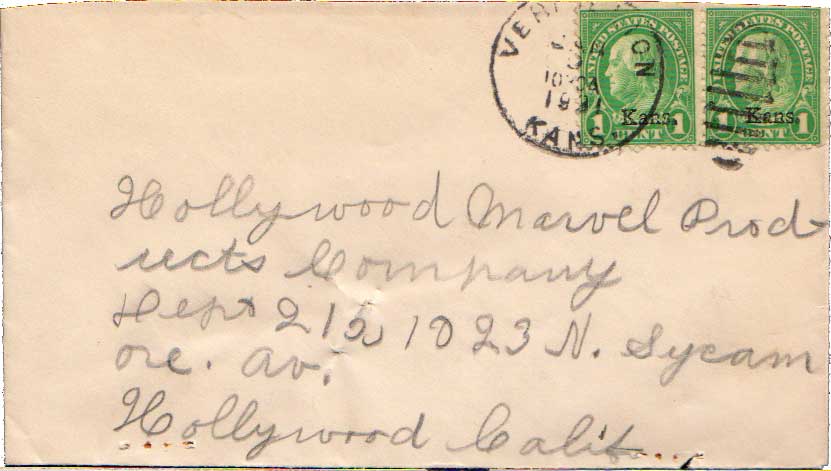 KANS.
UNITED STATES POSTAGE
Kans.
1 CENT 1
UNITED STATES POSTAGE
Kans.
1 CENT 1
Hollywood Marvel Prod-
ucts Company
Dept 212 1023 N. Sycam
ore. Av.
Hollywood Calif.